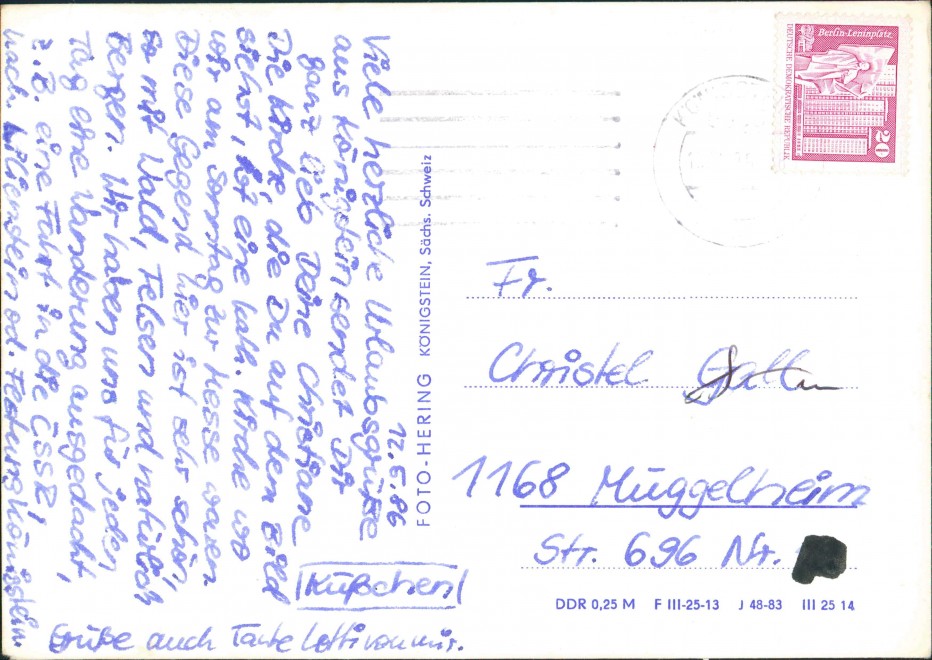 12.5.86
Viele herzliche Urlaubsgrüße
aus Königstein sendet Dir
ganz lieb Deine Christiane
Die Kirche, die Du auf dem Bild
siehst, ist eine kath. Kirche wo
wir am Sonntag zur Messe waren
Diese Gegend hier ist sehr schön,
so mit Wald, Felsen und natürlich
Bergen. Wir haben uns für jeden
Tag eine Wanderung ausgedacht,
z.B. eine Fahrt in die ČSSR,
nach Lilienstein od. Festung Königstein.
Küßchen
Grüße auch Tante Lotti von mir.
FOTO-HERING KÖNIGSTEIN, Sächs. Schweiz
Berlin-Leninplatz
DEUTSCHE DEMOKRATISCHE REPUBLIK
20
Fr.
Christel
1168 Müggelheim
Str. 696 Nr.
DDR 0,25 M F III-25-13 J 48-83 III 25 14